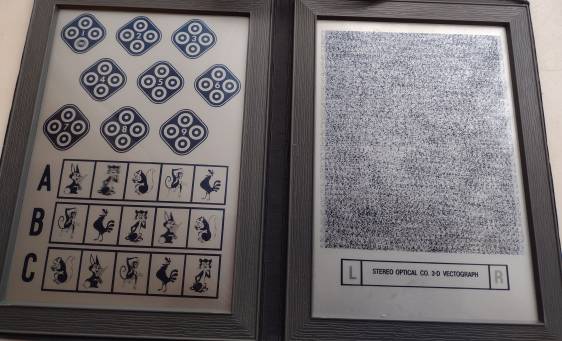 1 2 3
4 5 6
7 8 9
A
B
C
L STEREO OPTICAL CO. 3-D VECTOGRAPH R